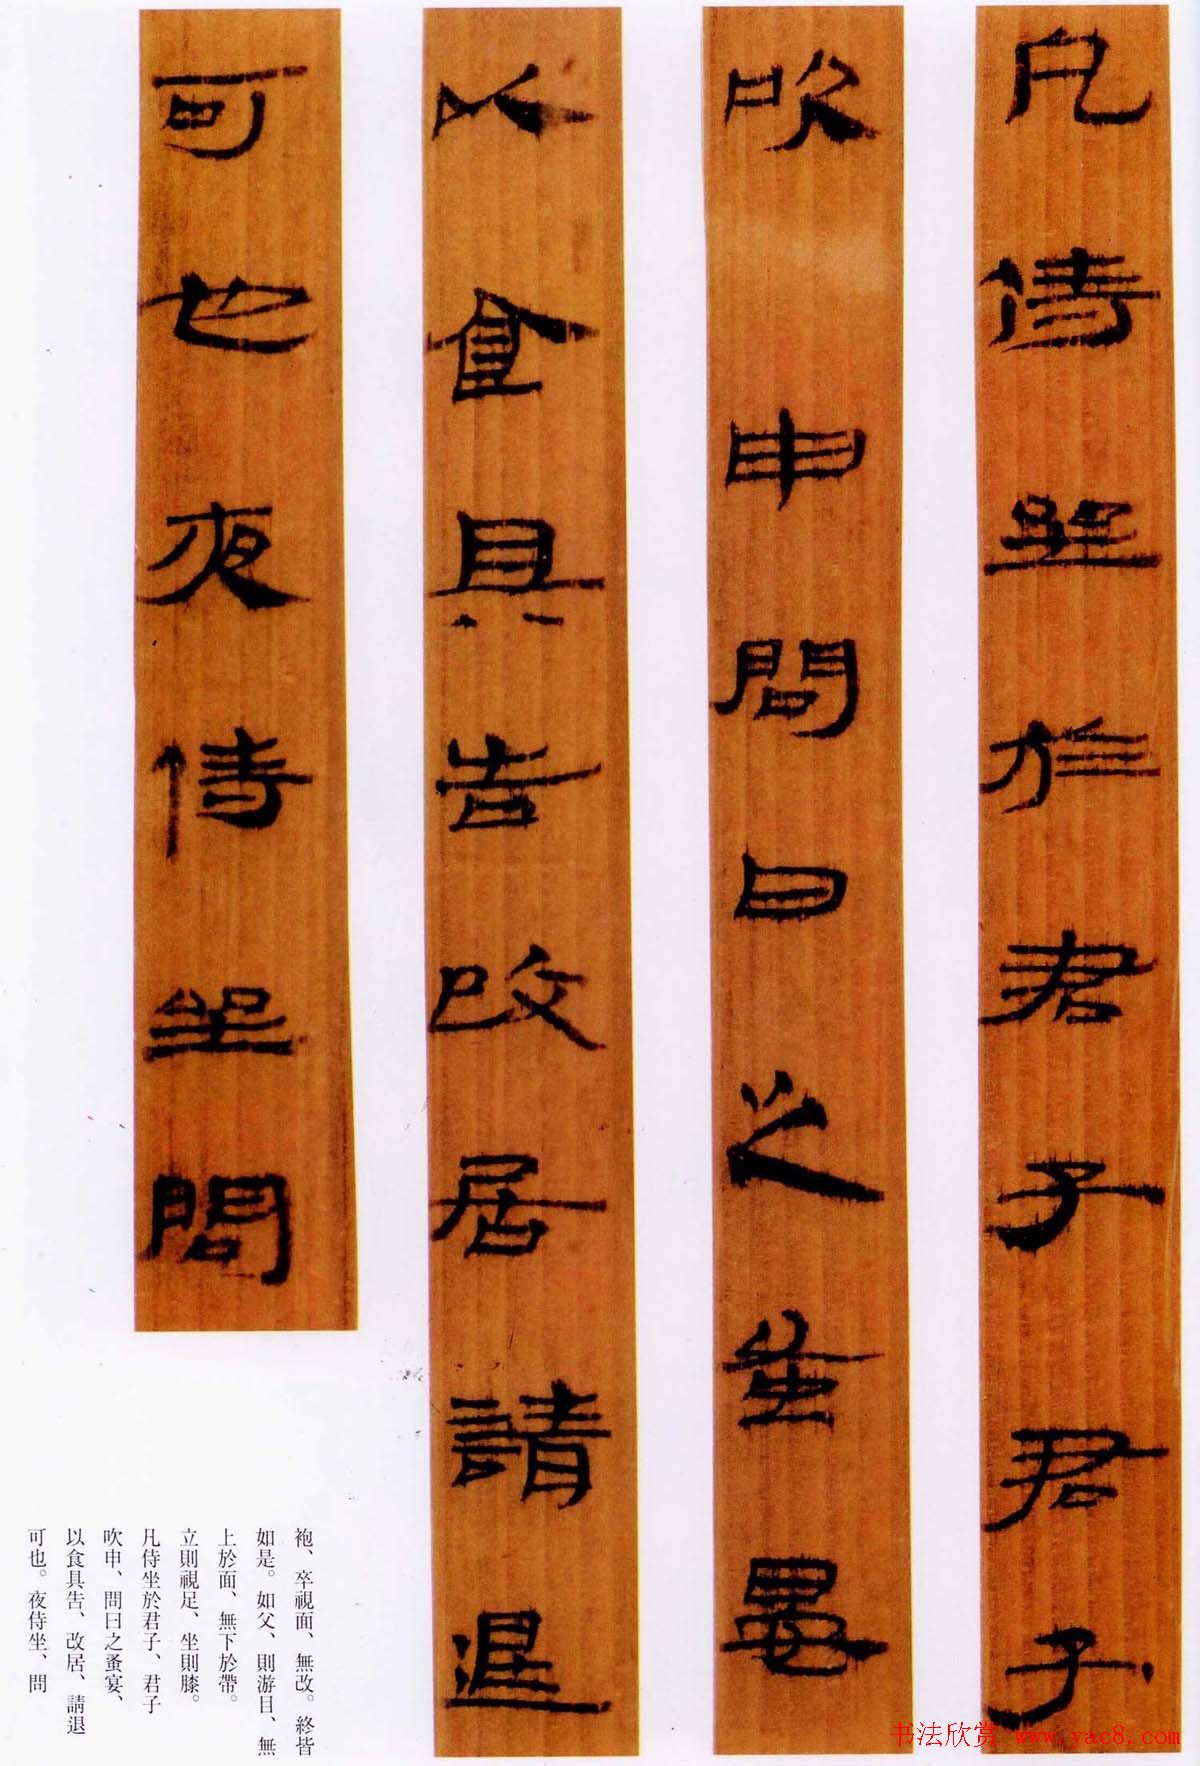 凡侍坐於君子君子
吹申問曰之蚤晏
以食具告改居請退
可也夜侍坐問
袍、卒視面、無改。終皆
如是。如父、則游目、無
上於面、無下於帶。
立則視足、坐則膝。
凡侍坐於君子、君子
吹申、問曰之蚤宴、
以食具告、改居、請退
可也。夜侍坐、問
书法欣赏 www.yac8.com